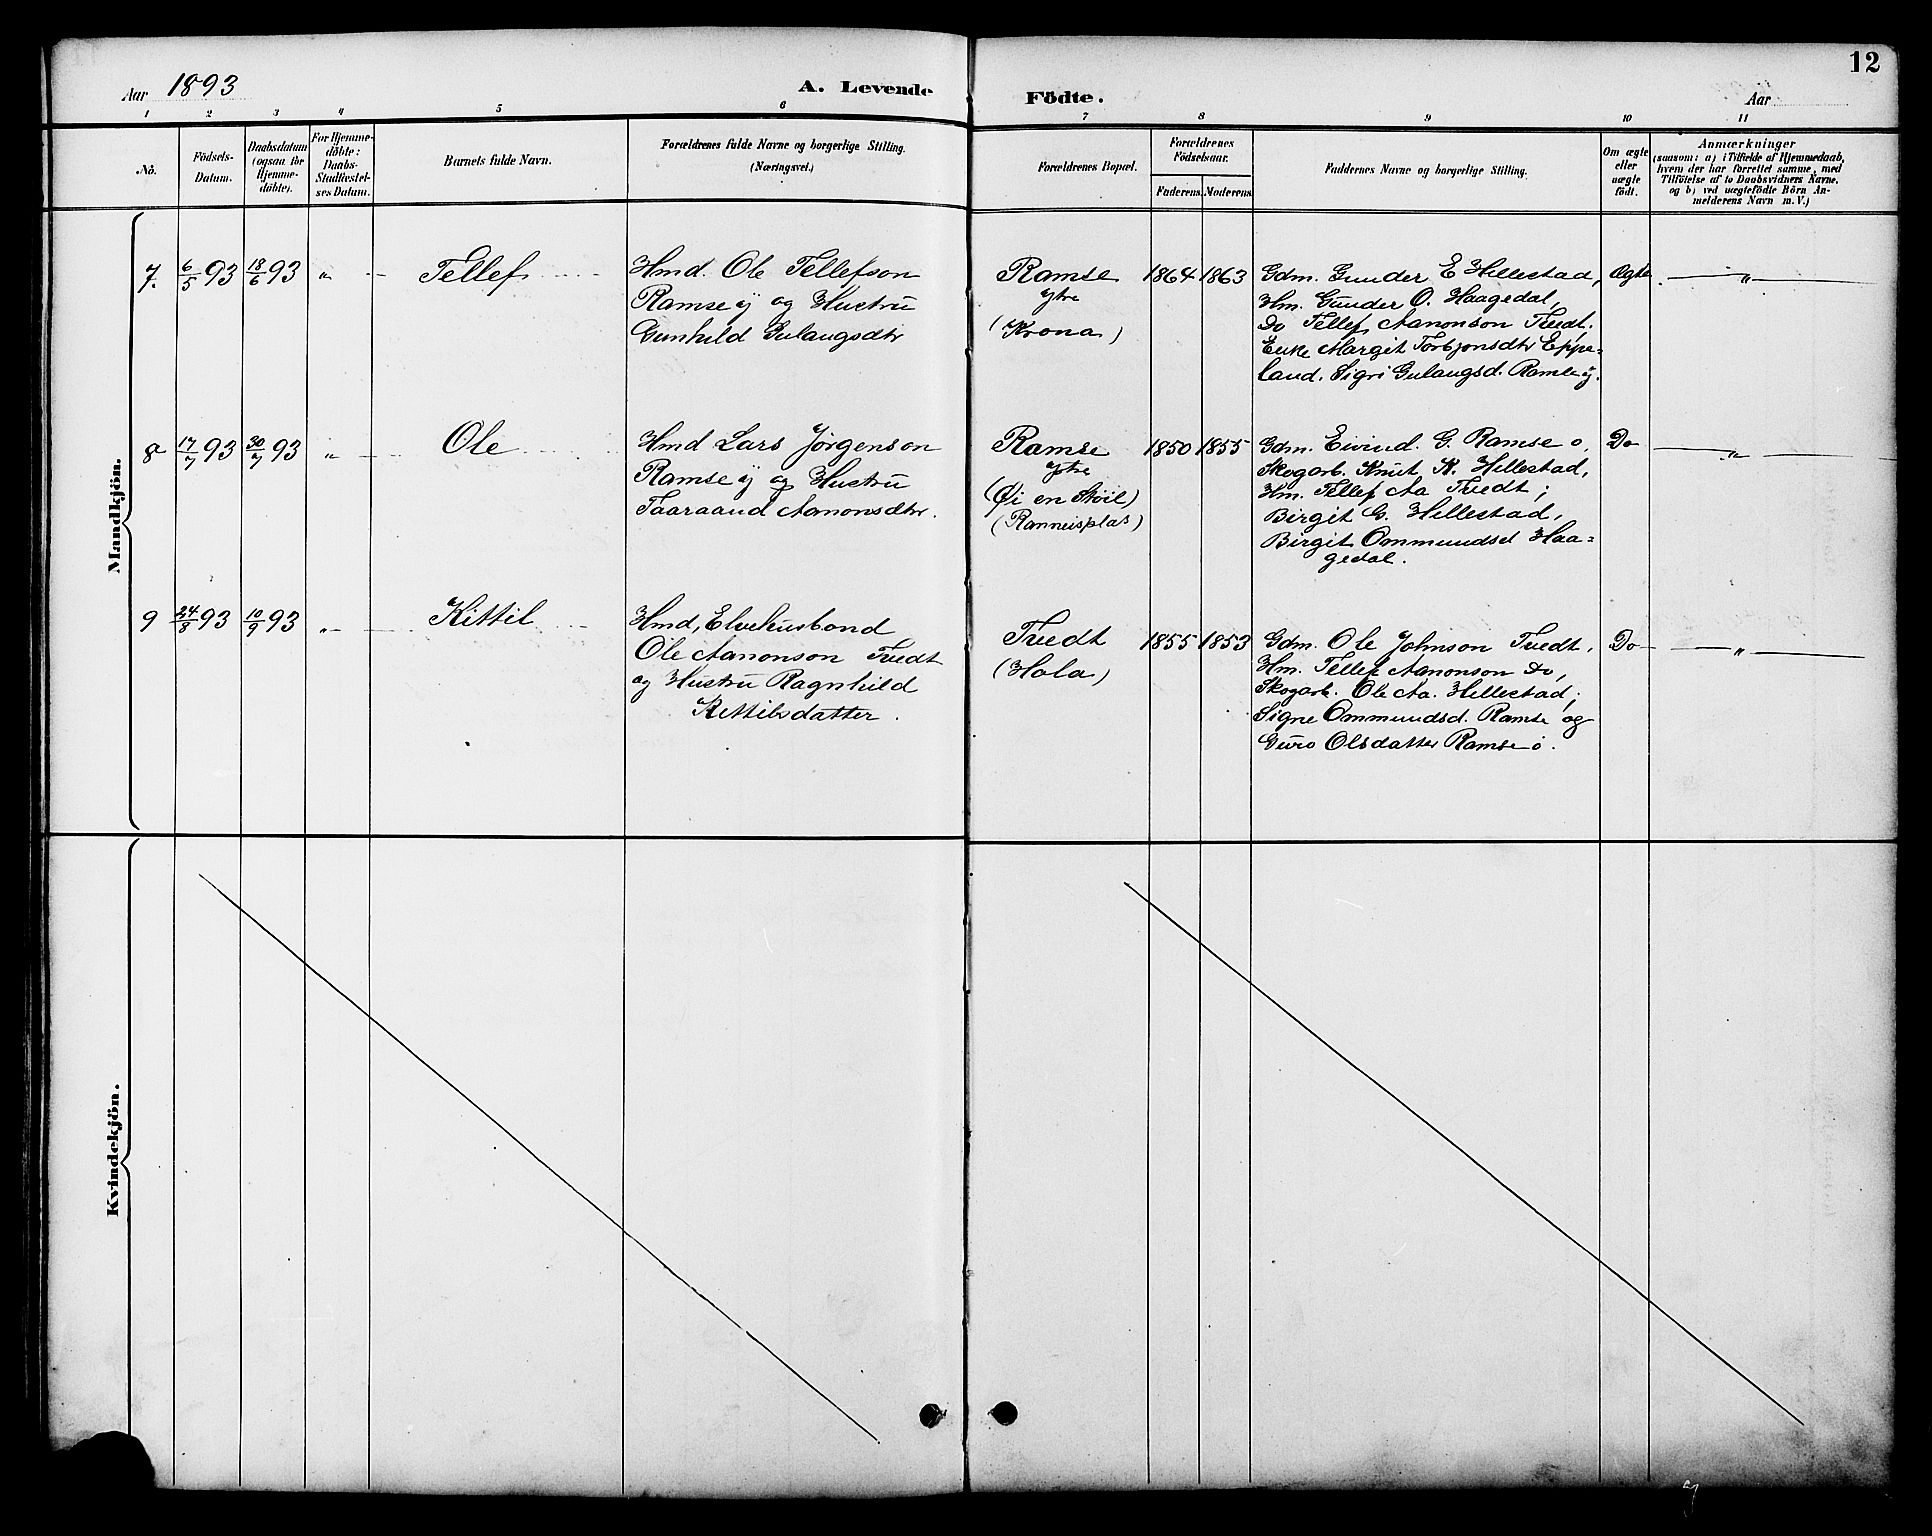 12
Aar 1893
A. Levende Födte.
Aar
1 2 3 4 5 6 7 8 9 10 11
No.
Födsels-
Datum.
Daabsdatum
(ogsaa for
Hjemme-
döbte).
For Hjemme-
döbte:
Daabs-
Stadfæstel-
ses Datum.
Barnets fulde Navn.
Forældrenes fulde Navne og borgerlige Stilling.
(Næringsvei.)
Forældrenes Bopæl.
Forældrenes
Födselsaar.
Faderens. Moderens.
Faddernes Navne og borgerlige Stilling.
Om ægte
eller
uægte
födt.
Anmærkninger
(saasom: a) i Tilfælde af Hjemmedaab,
hvem der har forrettet samme, med
Tilföielse af to Daabsvidners Navne,
og b) ved uægtefödte Börn An-
melderens Navn m. V.)
Mandkjön.
7. 6/5 93 18/6 93 " Tellef
Hmd. Ole Tellefson
Ramse y og Hustru
Gunhild Gulaugsdtr
Ramse
ytre
(Krona)
1864 1863
Gdm. Gunder E Hillestad,
Hm. Gunder O. Haagedal,
Do Tellef Aanonson Tvedt.
Enke Margit Torbjonsdtr Eppe-
land. Sigri Gulaugsd. Ramse y.
Ægte "
8 17/7 93 30/7 93 " Ole
Hmd Lars Jørgenson
Ramse y og Hustru
Taaraand Aanonsdtr.
Ramse
Ytre
(Øi en Støil)
(Ranneisplas)
1850 1855
Gdm. Eivind. G. Ramse o,
Skogarb. Knut K. Hillestad,
Hm. Tellef Aa Tvedt;
Birgit G. Hillestad,
Birgit Ommundsd Haa-
gedal.
Do "
9 24/8 93 10/9 93 " Kittil
Hmd, Elvehusbond
Ole Aanonson Tvedt
og Hustru Ragnhild
Kittilsdatter.
Tvedt
(Hola)
1855 1853
Gdm. Ole Johnson Tvedt,
Hm. Tellef Aanonson Do,
Skogarb. Ole Aa. Hillestad;
Signe Ommundsd. Ramse og
Guro Olsdatter Ramse o.
Do "
Kvindekjön.